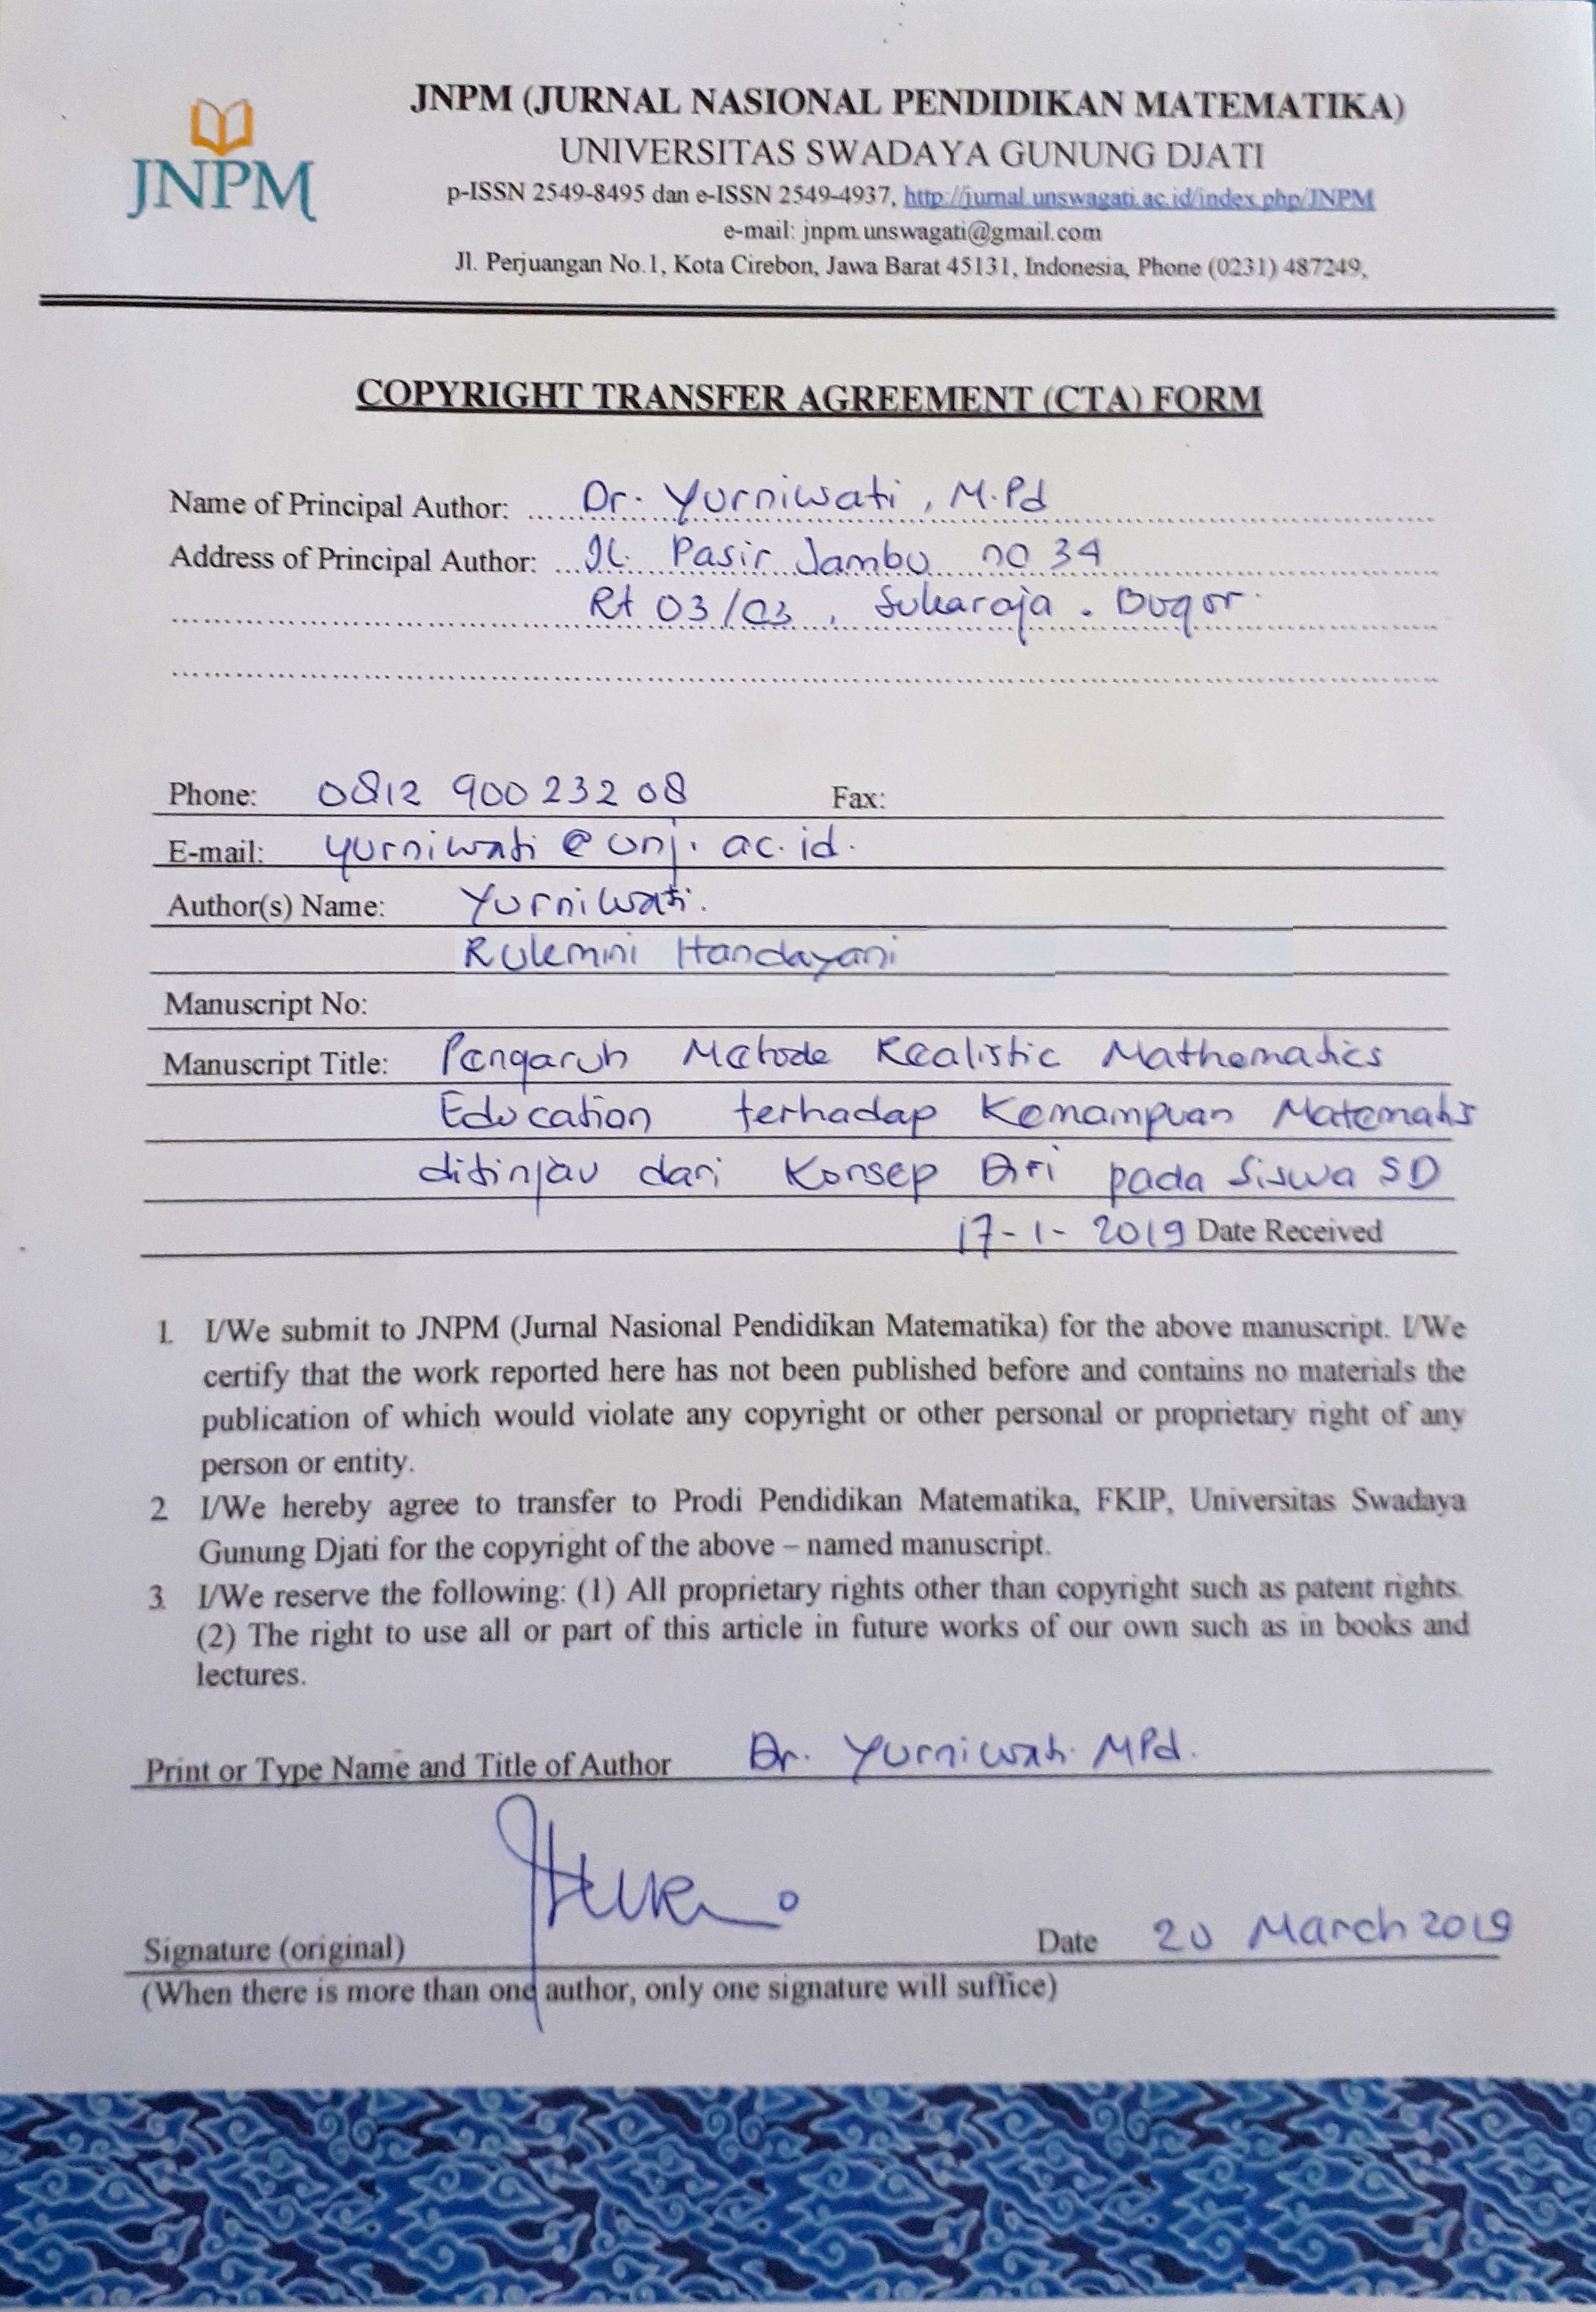 JNPM
JNPM (JURNAL NASIONAL PENDIDIKAN MATEMATIKA)
UNIVERSITAS SWADAYA GUNUNG DJATI
p-ISSN 2549-8495 dan e-ISSN 2549-4937, http://jurnal.unswagati.ac.id/index.php/JNPM
e-mail: jnpm.unswagati@gmail.com
Jl. Perjuangan No.1, Kota Cirebon, Jawa Barat 45131, Indonesia, Phone (0231) 487249,
COPYRIGHT TRANSFER AGREEMENT (CTA) FORM
Name of Principal Author: Dr. Yurniwati, M.Pd
Address of Principal Author: Jl. Pasir Jambu no 34
Rt 03/03, Sukaraja. Bogor
Phone: 0812 900 232 08 Fax:
E-mail: yurniwati@unj.ac.id.
Author(s) Name: Yurniwati.
Rukmini Handayani
Manuscript No:
Manuscript Title: Pengaruh Metode Realistic Mathematics
Education terhadap Kemampuan Matematis
ditinjau dari Konsep Diri pada Siswa SD
17-1-2019 Date Received
1. I/We submit to JNPM (Jurnal Nasional Pendidikan Matematika) for the above manuscript. I/We
certify that the work reported here has not been published before and contains no materials the
publication of which would violate any copyright or other personal or proprietary right of any
person or entity.
2. I/We hereby agree to transfer to Prodi Pendidikan Matematika, FKIP, Universitas Swadaya
Gunung Djati for the copyright of the above – named manuscript.
3. I/We reserve the following: (1) All proprietary rights other than copyright such as patent rights.
(2) The right to use all or part of this article in future works of our own such as in books and
lectures.
Print or Type Name and Title of Author Dr. Yurniwati MPd.
Signature (original) Date 20 March 2019
(When there is more than one author, only one signature will suffice)